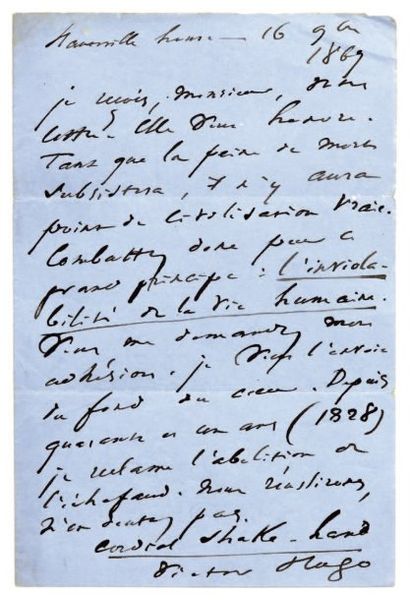 Hauteville house — 16 9bre
1869
je reçois, Monsieur, votre
lettre. Elle vous honore.
Tant que la peine de mort
subsistera, il n'y aura
point de civilisation vraie.
Combattez donc pour ce
grand principe : l'inviola-
bilité de la vie humaine.
Vous me demandez mon
adhésion. je vous l'envoie
du fond du cœur. Depuis
quarante et un ans (1828)
je réclame l'abolition de
l'échafaud. Nous réussirons,
n'en doutez pas.
cordial shake-hand
Victor Hugo